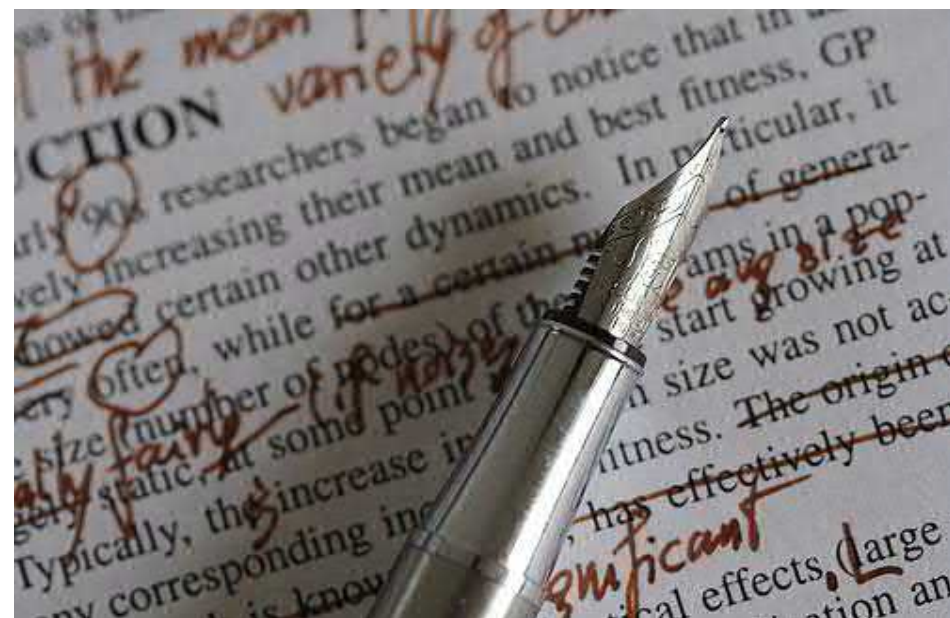 the mean
variety of
UCTION
arly 90s researchers began to notice that in
vely increasing their mean and best fitness, GP
howed certain other dynamics. In particular, it
ery often, while for a certain nu of genera-
e size (number of nodes) of the ams in a pop-
e avg size
gely static, at some point start growing at
Typically, the increase in n size was not ac
any corresponding inc itness. The origin
is know , has effectively been
gnificant
tical effects, Large
tion an